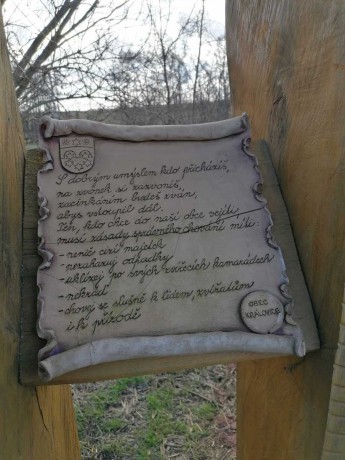 S dobrým úmyslem kdo přicházíš,
na zvonek si zazvoníš,
zacinkáním budeš zván,
abys vstoupil dál.
Ten, kdo chce do naší obce vejíti,
musí zásady správného chování míti:
- neničí cizí majetek
- nezahazuj odpadky
- uklízej po svých zvířecích kamarádech
- nekraď
- chovej se slušně k lidem, zvířatům
i k přírodě
OBEC